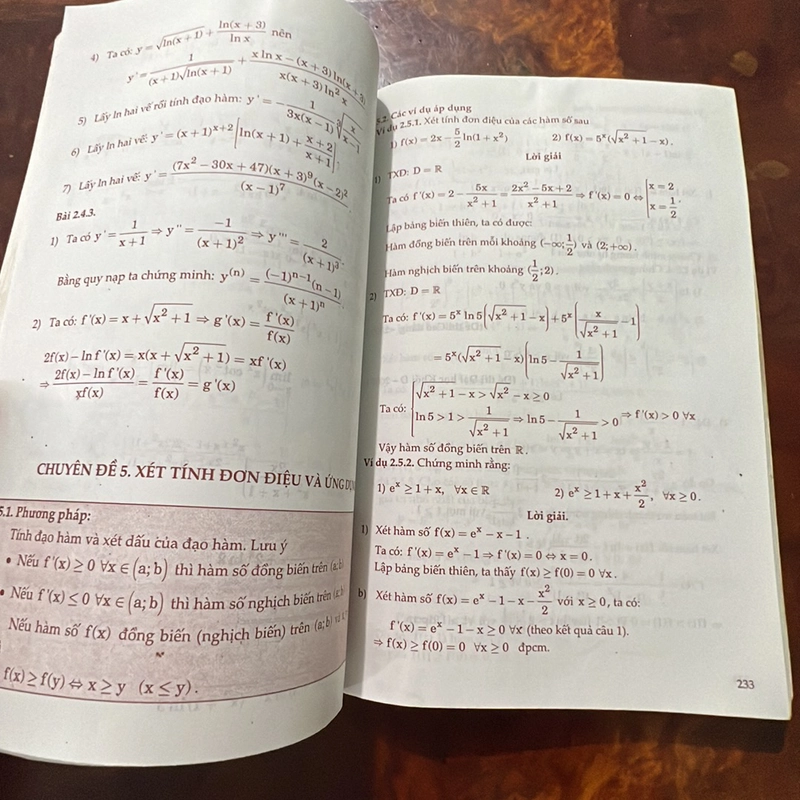 4) Ta có: y = √ln(x + 1) + ln(x + 3)/ln x nên
y' = 1/((x + 1)√ln(x + 1)) + (x ln x − (x + 3) ln(x + 3))/(x(x + 3) ln² x)
5) Lấy ln hai vế rồi tính đạo hàm: y' = − 1/(3x(x − 1)) ∛(x/(x − 1))
6) Lấy ln hai vế: y' = (x + 1)^(x+2) [ln(x + 1) + (x + 2)/(x + 1)].
7) Lấy ln hai vế: y' = (7x² − 30x + 47)(x + 3)⁹(x − 2)²/(x − 1)⁷.
Bài 2.4.3.
1) Ta có y' = 1/(x + 1) ⇒ y'' = −1/(x + 1)² ⇒ y''' = 2/(x + 1)³.
Bằng quy nạp ta chứng minh: y⁽ⁿ⁾ = (−1)ⁿ⁻¹(n − 1)/(x + 1)ⁿ.
2) Ta có: f'(x) = x + √(x² + 1) ⇒ g'(x) = f'(x)/f(x)
2f(x) − ln f'(x) = x(x + √(x² + 1)) = xf'(x)
⇒ (2f(x) − ln f'(x))/(xf(x)) = f'(x)/f(x) = g'(x)
CHUYÊN ĐỀ 5. XÉT TÍNH ĐƠN ĐIỆU VÀ ỨNG DỤNG
5.1. Phương pháp:
Tính đạo hàm và xét dấu của đạo hàm. Lưu ý
• Nếu f'(x) ≥ 0 ∀x ∈ (a; b) thì hàm số đồng biến trên (a; b)
• Nếu f'(x) ≤ 0 ∀x ∈ (a; b) thì hàm số nghịch biến trên (a; b)
Nếu hàm số f(x) đồng biến (nghịch biến) trên (a; b) và
f(x) ≥ f(y) ⇔ x ≥ y (x ≤ y).
5.2. Các ví dụ áp dụng
Ví dụ 2.5.1. Xét tính đơn điệu của các hàm số sau
1) f(x) = 2x − 5/2 ln(1 + x²) 2) f(x) = 5ˣ(√(x² + 1) − x).
Lời giải
1) TXĐ: D = ℝ
Ta có f'(x) = 2 − 5x/(x² + 1) = (2x² − 5x + 2)/(x² + 1) ⇒ f'(x) = 0 ⇔ [x = 2, x = 1/2.
Lập bảng biến thiên, ta có được:
Hàm đồng biến trên mỗi khoảng (−∞; 1/2) và (2; +∞).
Hàm nghịch biến trên khoảng (1/2; 2).
2) TXĐ: D = ℝ
Ta có: f'(x) = 5ˣ ln 5(√(x² + 1) − x) + 5ˣ(x/√(x² + 1) − 1)
= 5ˣ(√(x² + 1) − x)(ln 5 − 1/√(x² + 1))
Ta có: {√(x² + 1) − x > √x² − x ≥ 0
ln 5 > 1 > 1/√(x² + 1) ⇒ ln 5 − 1/√(x² + 1) > 0 ⇒ f'(x) > 0 ∀x
Vậy hàm số đồng biến trên ℝ.
Ví dụ 2.5.2. Chứng minh rằng:
1) eˣ ≥ 1 + x, ∀x ∈ ℝ 2) eˣ ≥ 1 + x + x²/2, ∀x ≥ 0.
Lời giải.
1) Xét hàm số f(x) = eˣ − x − 1.
Ta có: f'(x) = eˣ − 1 ⇒ f'(x) = 0 ⇔ x = 0.
Lập bảng biến thiên, ta thấy f(x) ≥ f(0) = 0 ∀x.
b) Xét hàm số f(x) = eˣ − 1 − x − x²/2 với x ≥ 0, ta có:
f'(x) = eˣ − 1 − x ≥ 0 ∀x (theo kết quả câu 1).
⇒ f(x) ≥ f(0) = 0 ∀x ≥ 0 đpcm.
233